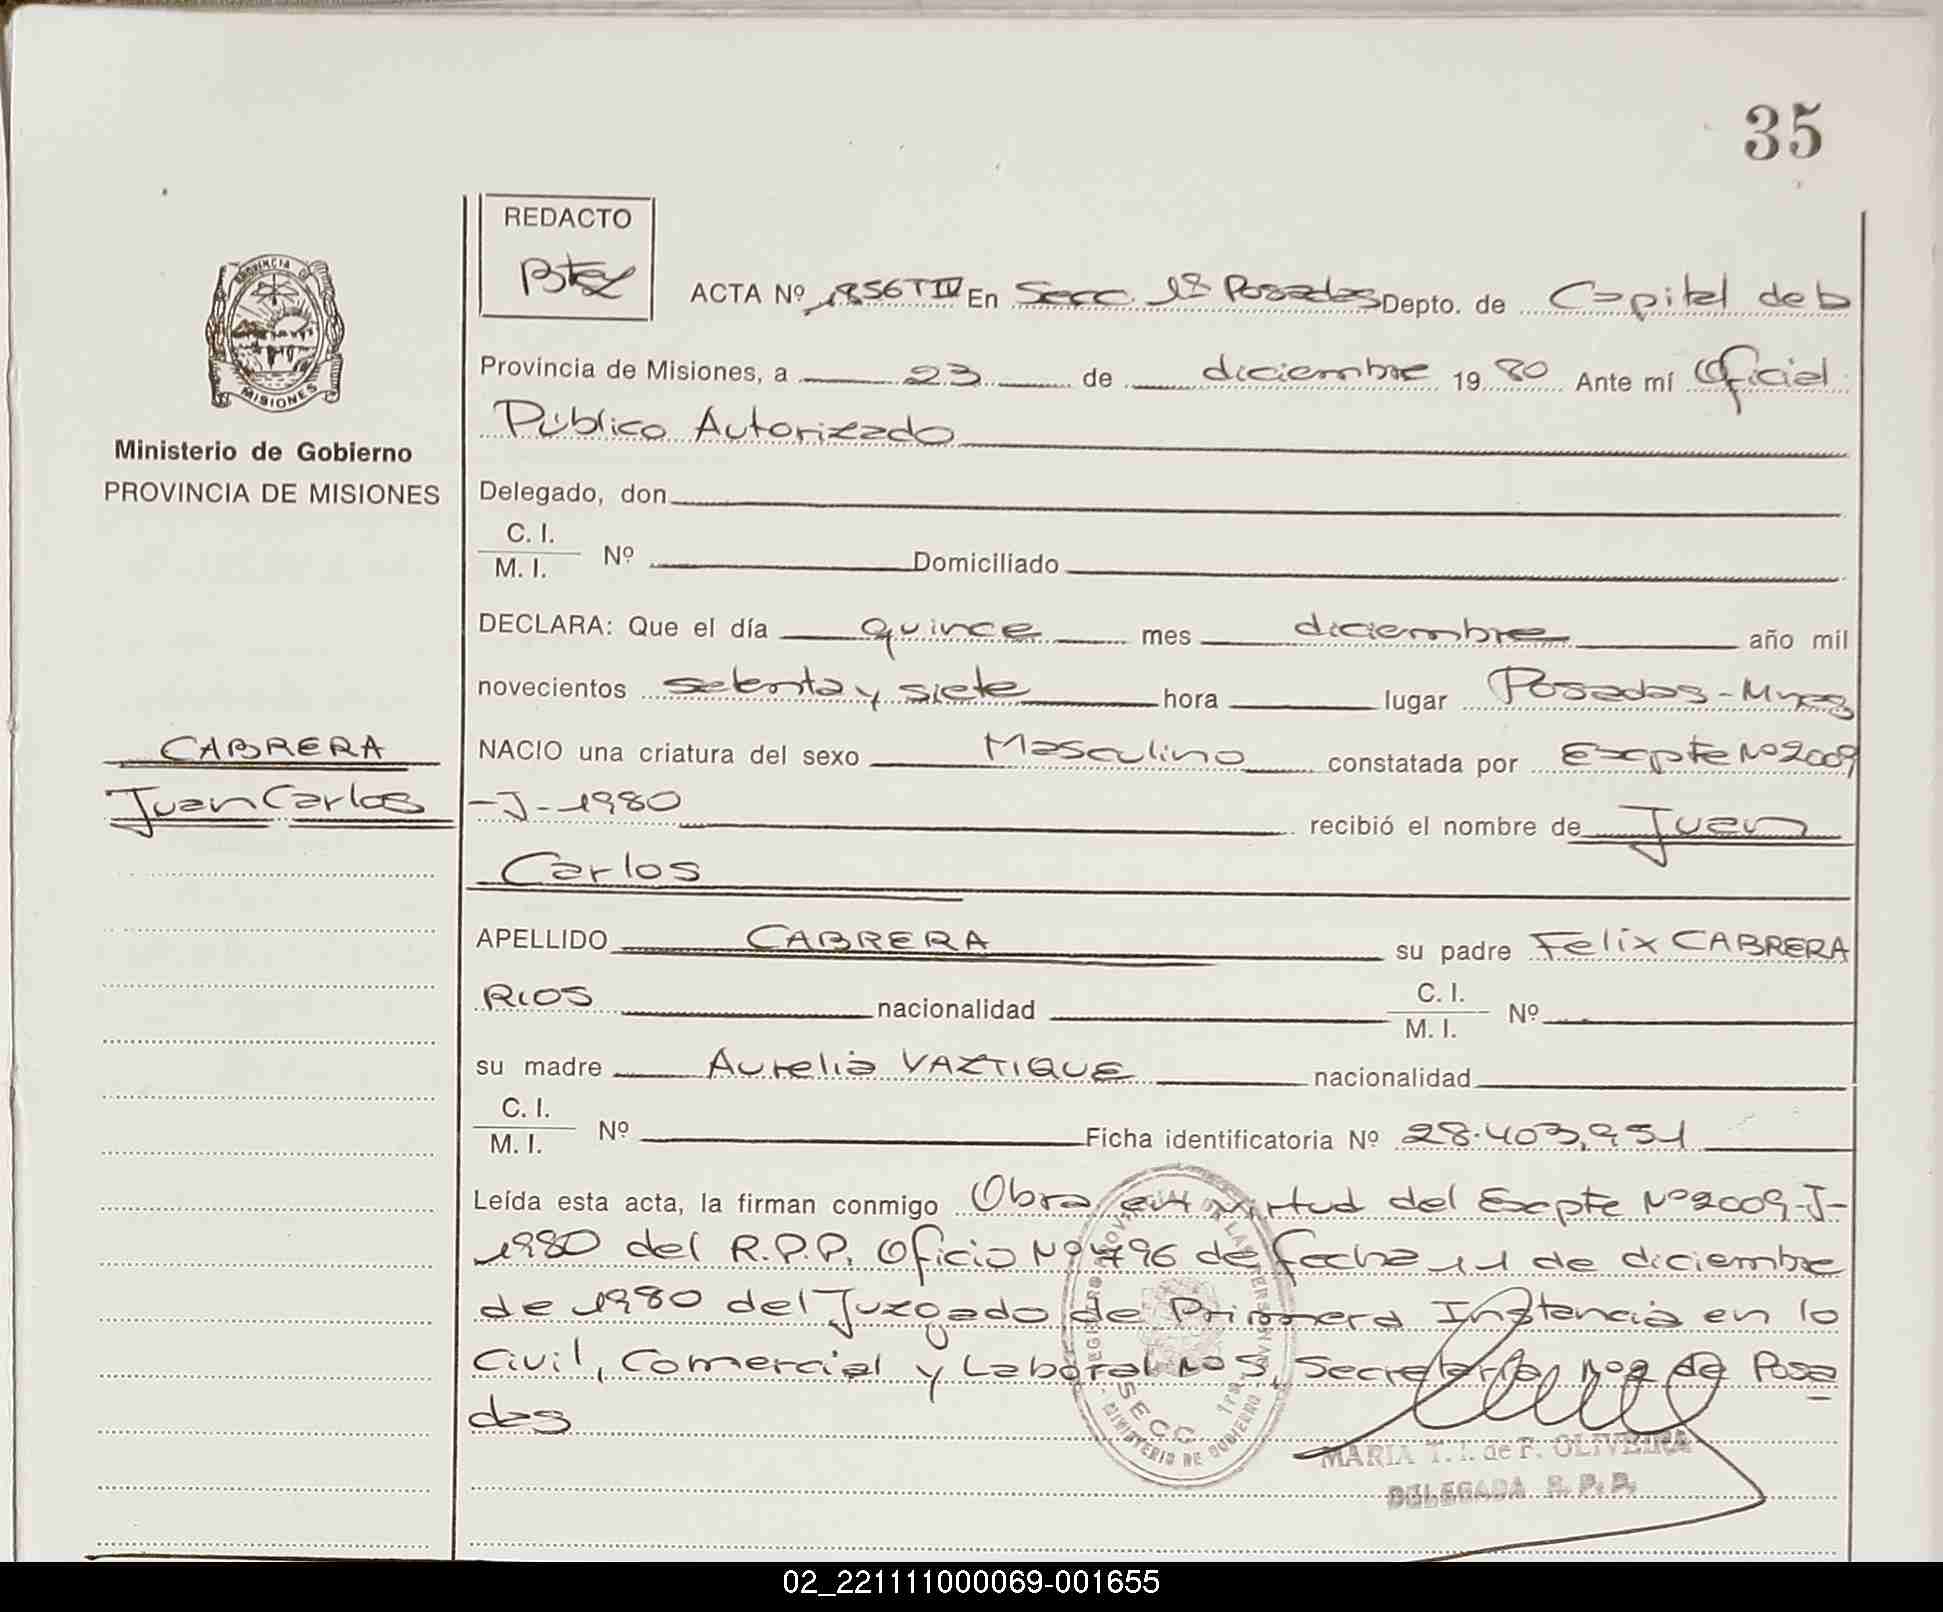 35
REDACTO
ACTA Nº 1856TIV En Secc. 1ª Posadas Depto. de Capital de la
Provincia de Misiones, a 23 de diciembre 19 80 Ante mí Oficial
Público Autorizado
PROVINCIA
MISIONES
Ministerio de Gobierno
PROVINCIA DE MISIONES
Delegado, don
C. I.
M. I. Nº Domiciliado
DECLARA: Que el día quince mes diciembre año mil
novecientos setenta y siete hora lugar Posadas - Mnes
NACIO una criatura del sexo Masculino constatada por Excpte Nº 2009
-J-1980 recibió el nombre de Juan
Carlos
CABRERA
Juan Carlos
APELLIDO CABRERA su padre Felix CABRERA
RIOS nacionalidad C. I.
M. I. Nº
su madre Aurelia VAZTIQUE nacionalidad
C. I.
M. I. Nº Ficha identificatoria Nº 28.403.951
Leída esta acta, la firman conmigo Obra en virtud del Excpte Nº 2009-J-
1980 del R.P.P. Oficio Nº 496 de fecha 11 de diciembre
de 1980 del Juzgado de Primera Instancia en lo
Civil, Comercial y Laboral Nº 5, Secretaría Nº 2 de Posa
das
SECC. 1ra.
MINISTERIO DE GOBIERNO
MARIA T. I. de F. OLIVEIRA
DELEGADA R. P. P.
02_221111000069-001655